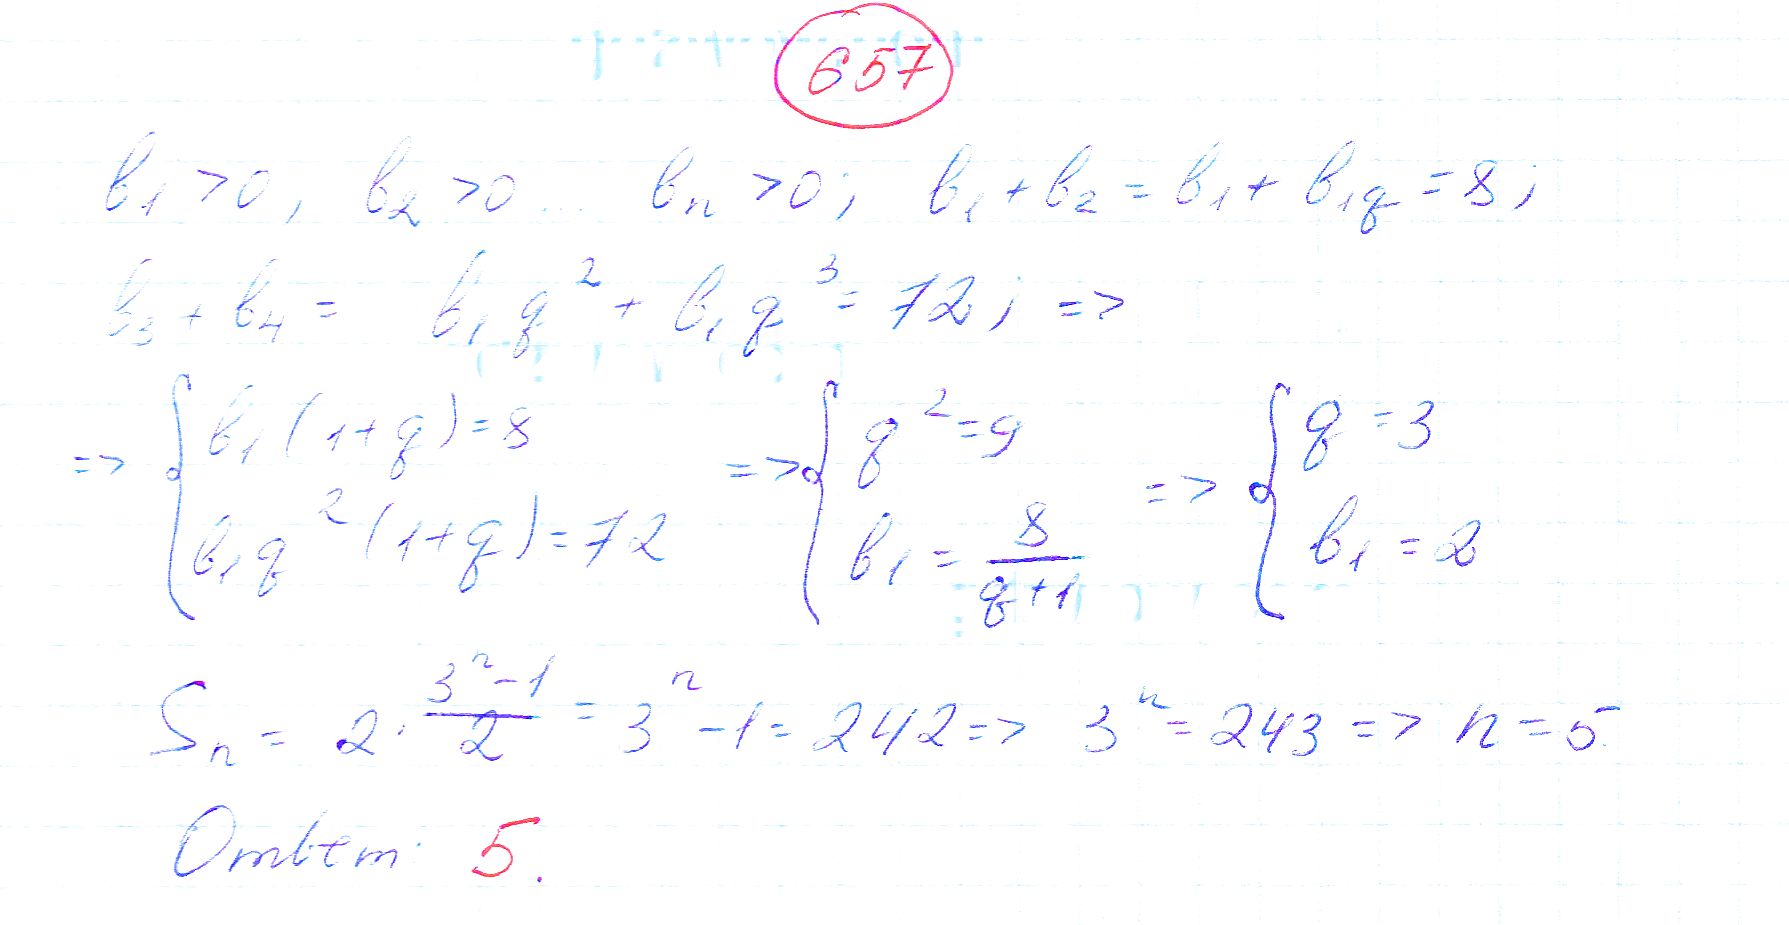 657
b₁ > 0, b₂ > 0 ... bₙ > 0; b₁ + b₂ = b₁ + b₁q = 8;
b₃ + b₄ = b₁q² + b₁q³ = 72; =>
=> { b₁(1+q) = 8 => { q² = 9 => { q = 3
b₁q²(1+q) = 72 b₁ = 8/(q+1) b₁ = 2
Sₙ = 2 · (3ⁿ - 1)/2 = 3ⁿ - 1 = 242 => 3ⁿ = 243 => n = 5.
Ответ: 5.